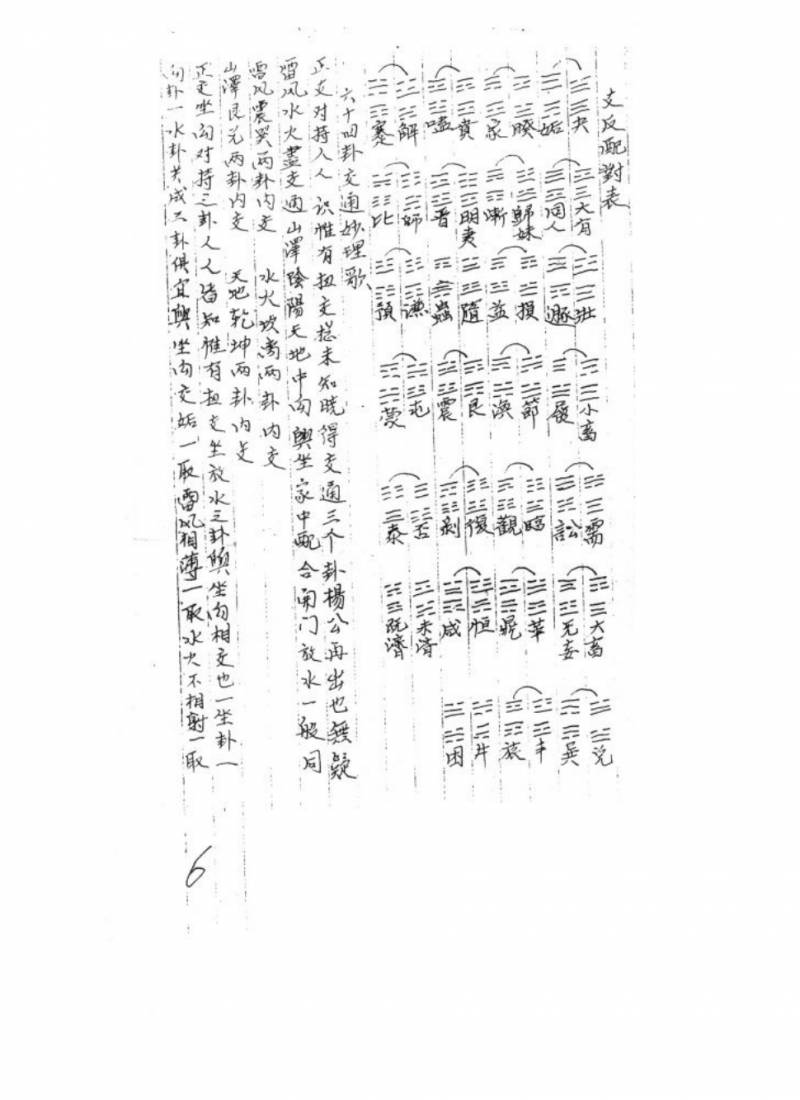 支反配對表
夬 姤 睽 家 賁 嗑 解 蹇
大有 同人 歸妹 漸 明夷 晋 師 比
壯 遯 損 益 隨 蠱 謙 預
小畜 履 節 渙 艮 震 屯 蒙
需 訟 臨 觀 復 剥 否 泰
大畜 无妄 萃 恒 咸 未濟 既濟
兌 巽 丰 旅 井 困
六十四卦交通妙理歌
正交对持人人识惟有扭交搃未知晓得交通三个卦楊公再出也無疑
雷风水火盡交通山澤陰陽天地中向與坐家中配合開门放水一般同
雷风震巽两卦内交 水火坎离两卦内交
山澤艮兑两卦内交 天地乾坤两卦内交
正交坐向对持三卦人人皆知惟有扭交坐放水之卦與坐向相交也一坐卦一
向卦一水卦共成三卦俱宜與坐向交姤一取雷风相薄一取水火不相射一取
6